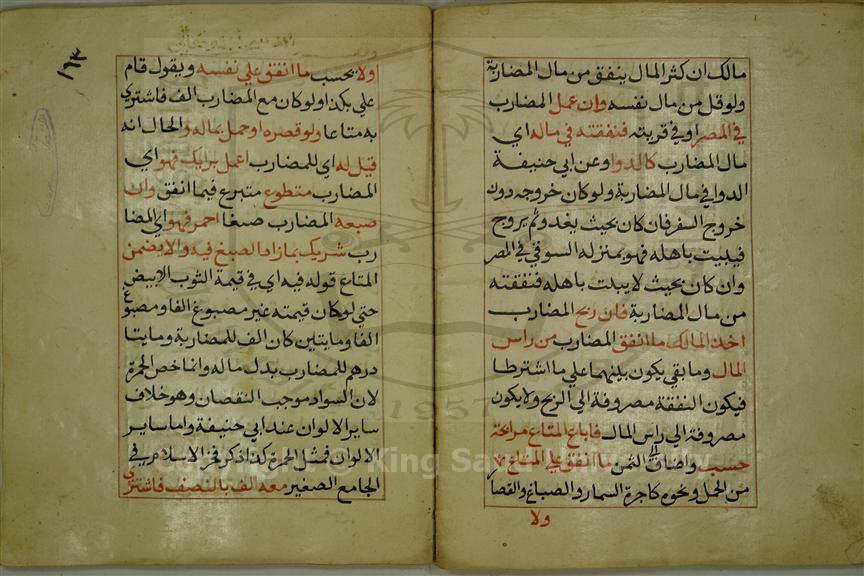 مالك ان كثر المال ينفق من مال المضاربة
ولو قل من مال نفسه وان عمل المضارب
في المصر او في قريته فنفقته في ماله اي
مال المضارب كالدوا وعن ابي حنيفة
الدوا في مال المضاربة ولو كان خروجه دون
خروج السفر فان كان بحيث يغد وثم يروح
فيبيت باهله فهو بمنزلة السوقي في المصر
وان كان بحيث لا يبيت باهله فنفقته
من مال المضاربة فان ربح المضارب
اخذ المالك ما انفق المضارب من راس
المال وما بقي يكون بينهما علي ما اشترطا
فيكون النفقة مصروفة الي الربح ولا يكون
مصروفة الي راس المال فاباع المتاع مرابحة
حسب واضاف الي الثمن ما انفق علي المتاع
من الحمل ونحوه كاجرة السمار والصباغ والقصا
ولا
١٦٣
ولا يحسب ما انفق علي نفسه ويقول قام
علي بكذا ولو كان مع المضارب الف فاشتري
به متاعا ولو قصره او حمل بماله والحال انه
قيل له اي للمضارب اعمل برايك فهو اي
المضارب متطوع متبرع فيما انفق وان
صبعه المضارب صبغا احمر فهو اي المضا
رب شريك بما زاد الصبغ فيه ولا يضمن
المتاع قوله فيه اي في قيمة الثوب الابيض
حتي لو كان قيمته غير مصبوغ الفا ومصبوغ
الفا ومايتين كان الف للمضاربة ومايتا
درهم للمضارب بدل ماله وانما خص الحمرة
لان السواد موجب النقصان وهو خلاف
ساير الالوان عند ابي حنيفة واما ساير
الالوان فمثل الحمرة كذا ذكر فخر الاسلام في
الجامع الصغير معه الف بالنصف فاشتري
1957
King Saud University